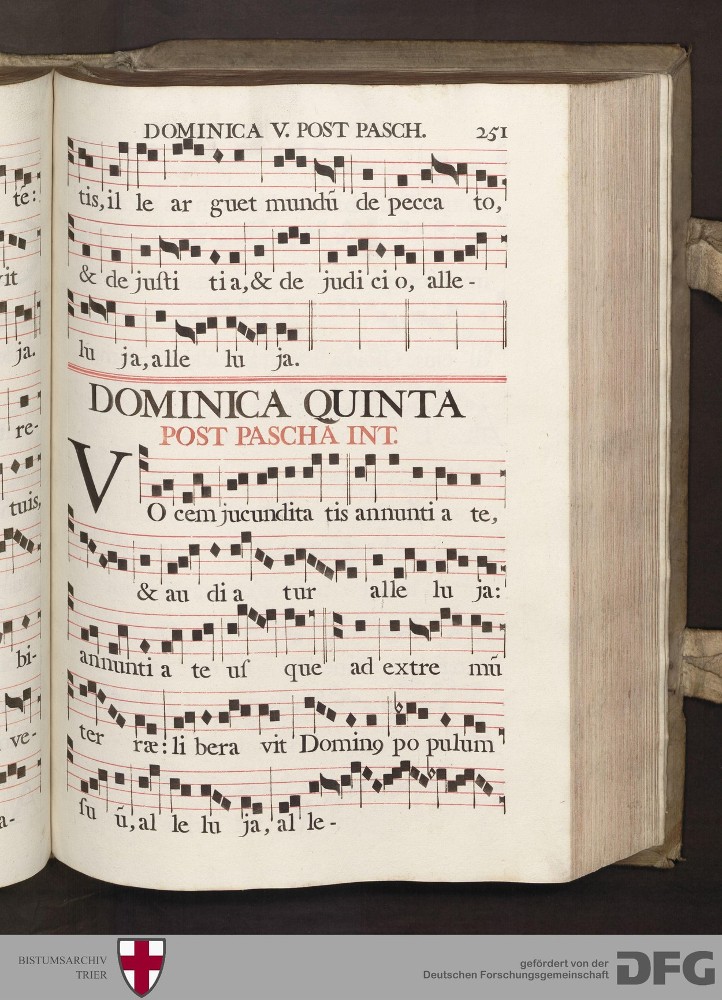 DOMINICA V. POST PASCH. 251
tis, il le ar guet mundũ de pecca to,
& de justi ti a, & de judi ci o, alle-
lu ja, alle lu ja.
DOMINICA QUINTA
POST PASCHA INT.
VO cem jucundita tis annunti a te,
& au di a tur alle lu ja:
annunti a te us que ad extre mũ
ter ræ: li bera vit Dominꝯ po pulum
su ũ, al le lu ja, al le-
te:
vit
ja.
re-
tuis,
bi-
ve-
a-
BISTUMSARCHIV
TRIER
gefördert von der
Deutschen Forschungsgemeinschaft
DFG